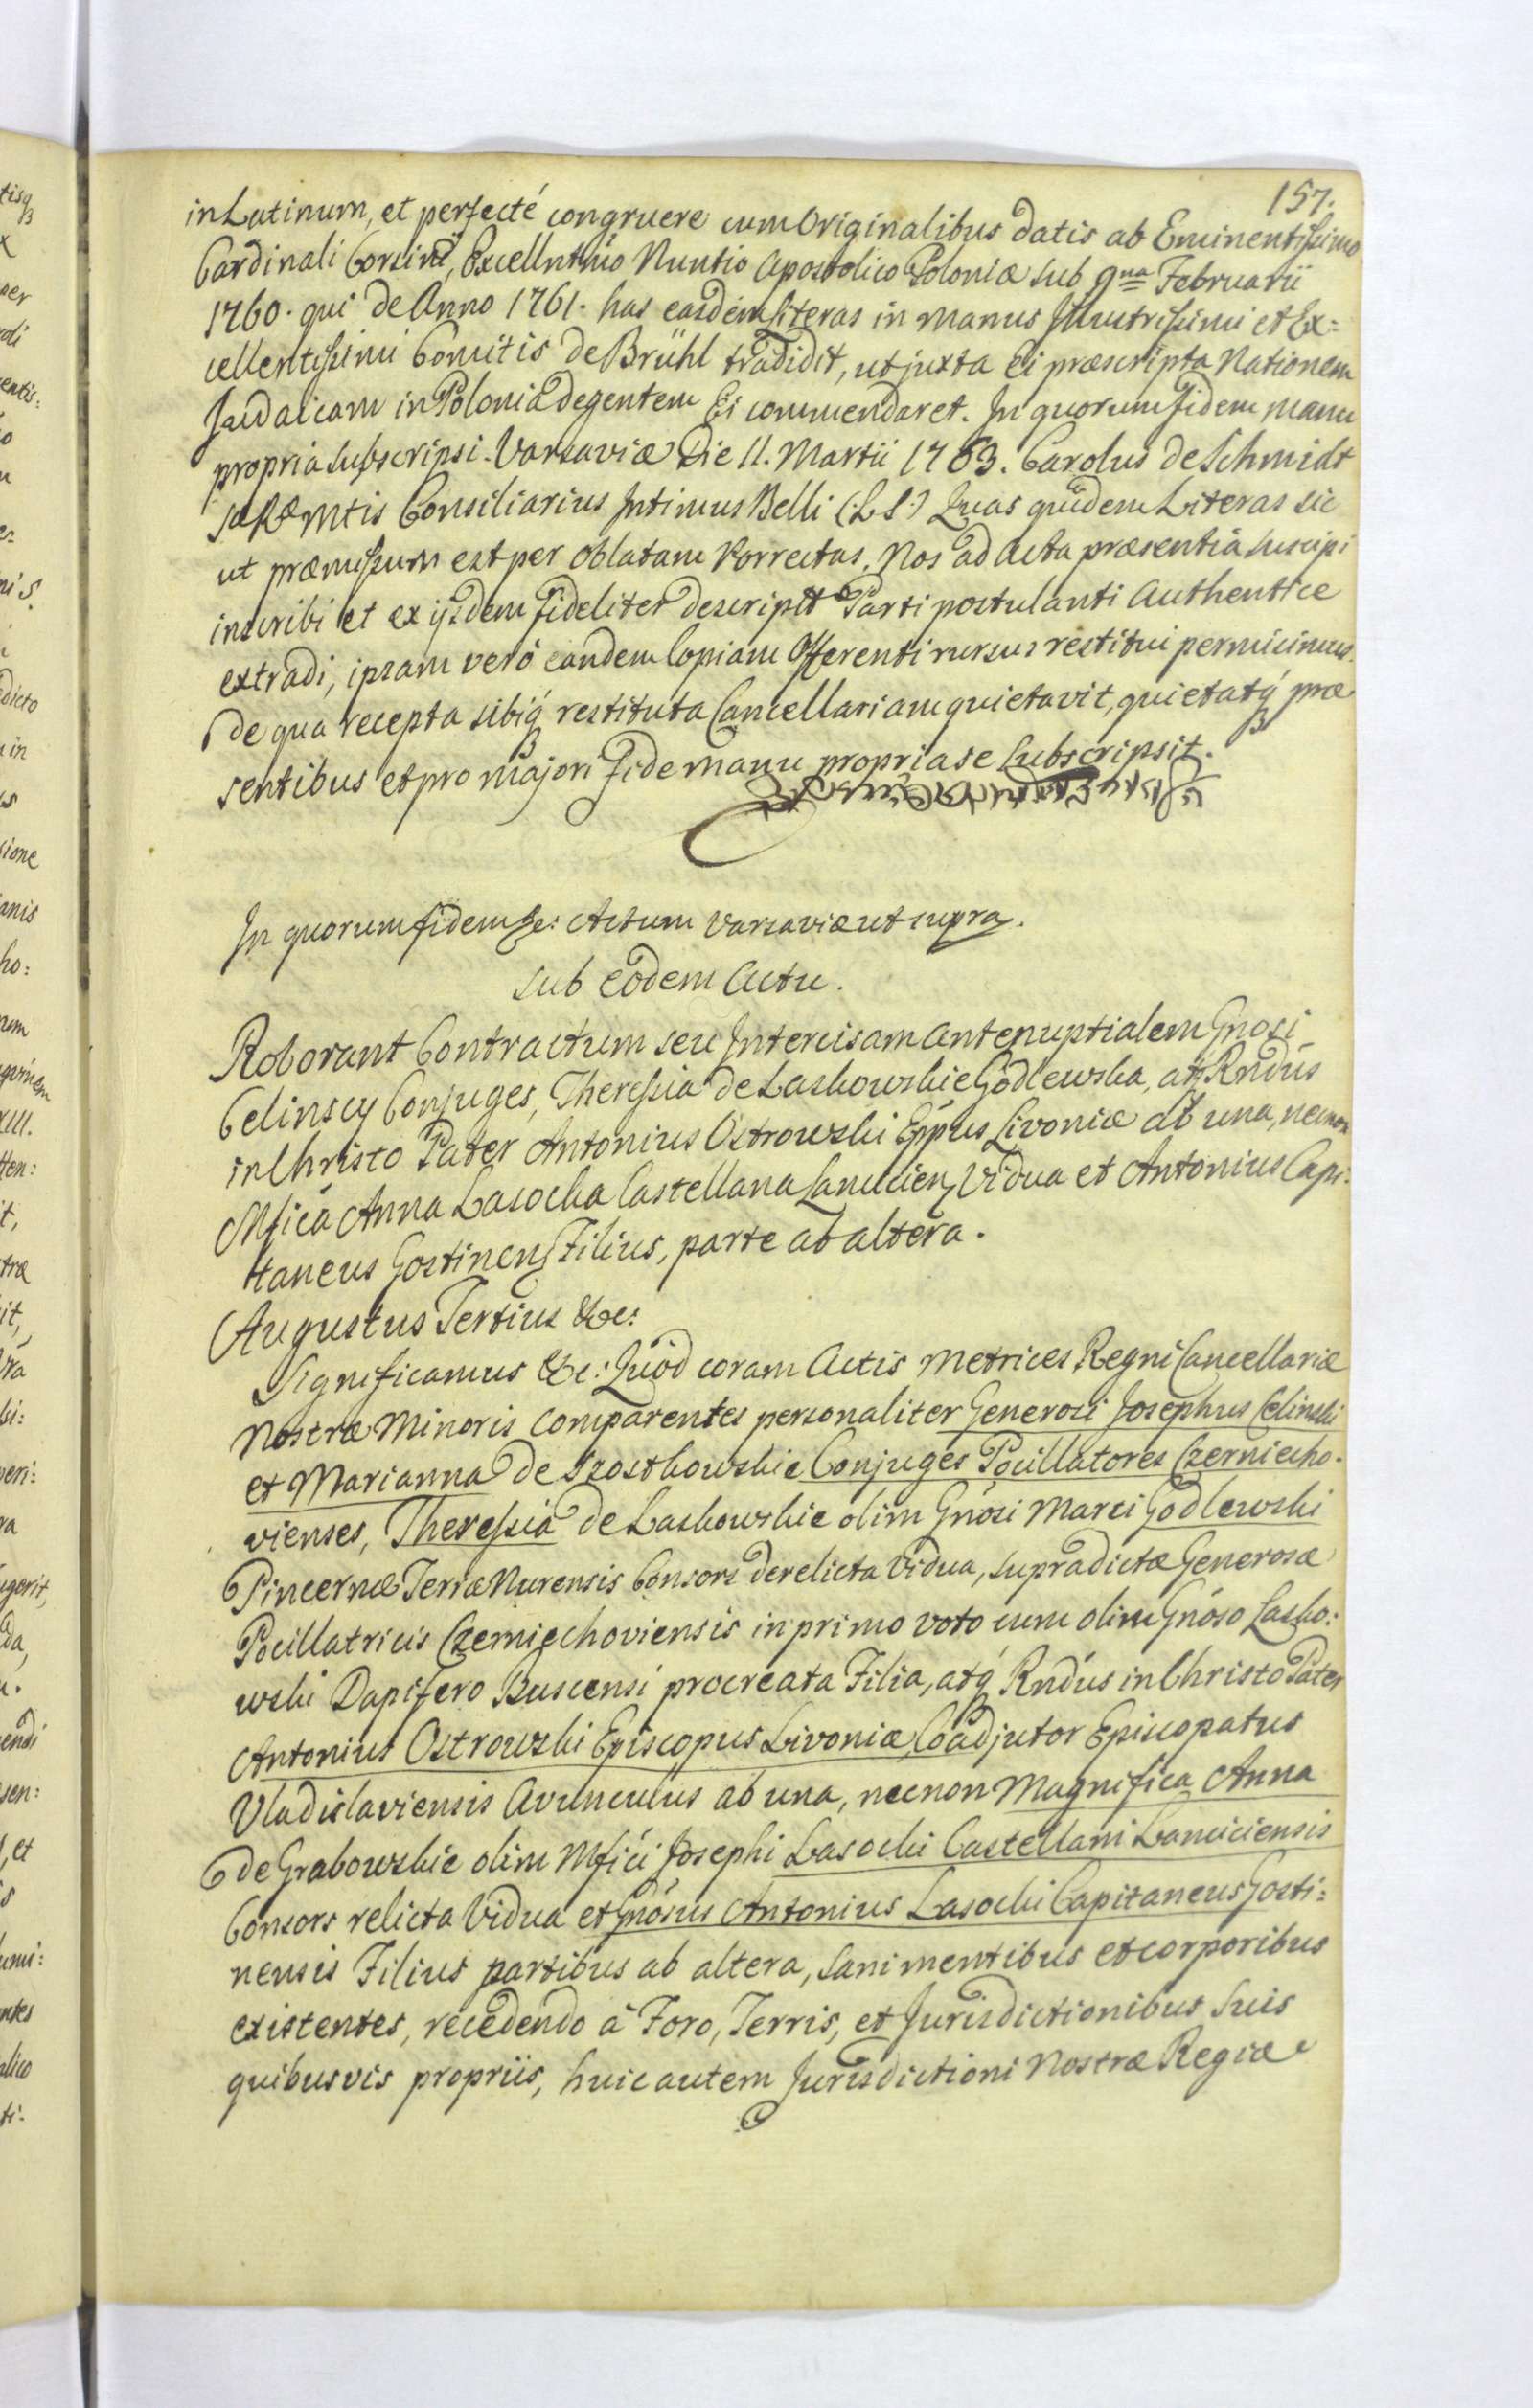 157.
in Latinum, et perfecté congruere cum Originalibus datis ab Eminentissimo
Cardinali Corsini, Excellntmo Nuntio Apostolico Poloniæ sub 9na Februarii
1760. qui de Anno 1761. has easdem Literas in manus Illustrissimi et Ex=
cellentissimi Comitis de Brühl tradidit, ut juxta Ei præscripta Nationem
Judaicam in Polonia degentem Ei commendaret. In quorum fidem manu
propria subscripsi. Varsaviæ Die 11. Martii 1763. Carolus de Schmidt
Mtis Consiliarius Intimus Belli (L.S.) Quas quidem Literas sic
ut præmissum est per oblatam Porrectas, Nos ad Acta præsentia suscipi
inscribi et ex ijsdem fideliter descriptt Parti postulanti Authentice
extradi, ipsam verò eandem Copiam Offerenti rursus restitui permisimus.
de qua recepta sibiq́ʒ restituta Cancellariam quietavit, quietatq́ʒ præ
sentibus et pro majori fide manu propria se subscripsit.
In quorum fidem &c: Actum Varsaviæ ut supra.
sub eodem Actu.
Roborant Contractum seu Intercisam Antenuptialem Gnosi
Celinscy Conjuges, Theressia de Laskowskie Godlewska, atq́ʒ Rndus
in Christo Pater Antonius Ostrowski Eppus Livoniæ ab una, necnon
Mfica Anna Lasocka Castellana Lancicien, Vidua et Antonius Capi:
taneus Gostinen, Filius, parte ab altera.
Augustus Tertius &c:
Significamus &c: Quod coram Actis Metrices Regni Cancellariæ
Nostræ Minoris Comparentes personaliter Generosi Josephus Celinski
et Marianna de Szostkowskie Conjuges Pocillatores Czerniecho-
vienses, Theressia de Laskowskie olim Gnosi Marci Godlewski
Pincernæ Terræ Nurensis Consors derelicta Vidua, supradictæ Generosæ
Pocillatricis Czerniechoviensis in primo voto cum olim Gnoso Lasko:
wski Dapifero Buscensi procreata Filia, atq́ʒ Rndus in Christo Pater
Antonius Ostrowski Episcopus Livoniæ, Coadjutor Episcopatus
Vladislaviensis Avunculus ab una, necnon Magnifica Anna
de Grabowskie olim Mfici Josephi Lasocki Castellani Lanciciensis
Consors relicta Vidua et Gnosus Antonius Lasocki Capitaneus Gosti=
nensis Filius partibus ab altera, sani mentibus et corporibus
existentes, recedendo à Foro, Terris, et Jurisdictionibus suis
quibusvis propriis, huic autem Jurisdictioni Nostræ Regiæ